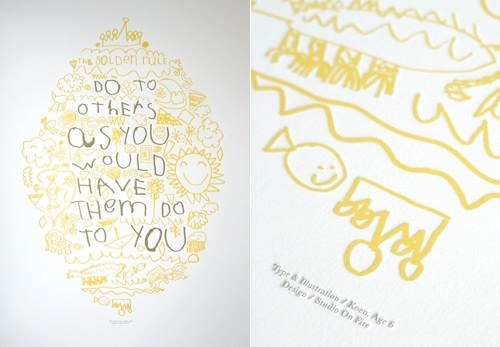 THE GOLDEN RULE
DO TO
OTHERS
AS YOU
WOULD
HAVE
THEM DO
TO YOU
Type & Illustration / Koen, Age 6
Design / Studio On Fire